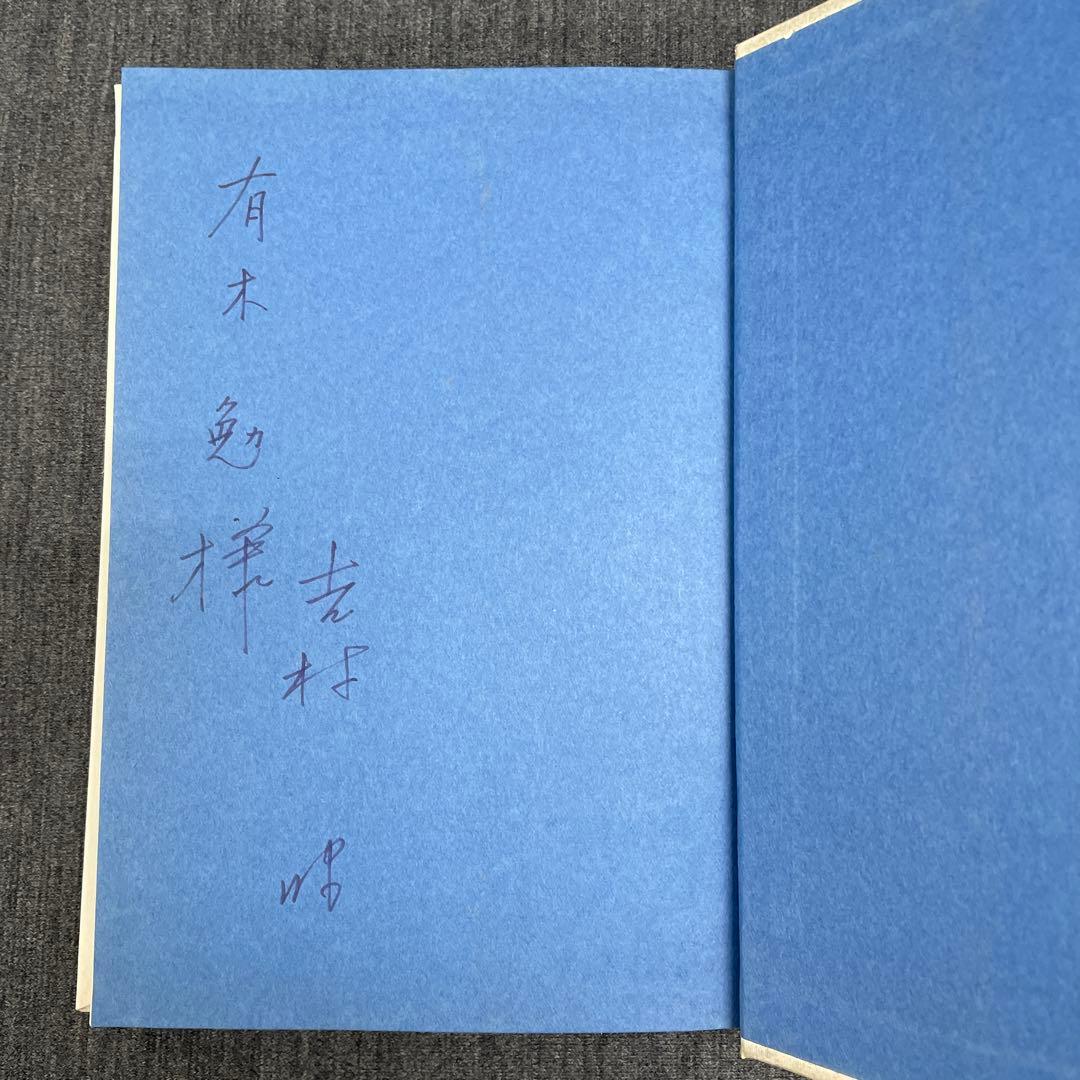 吉村 昭
有木勉様